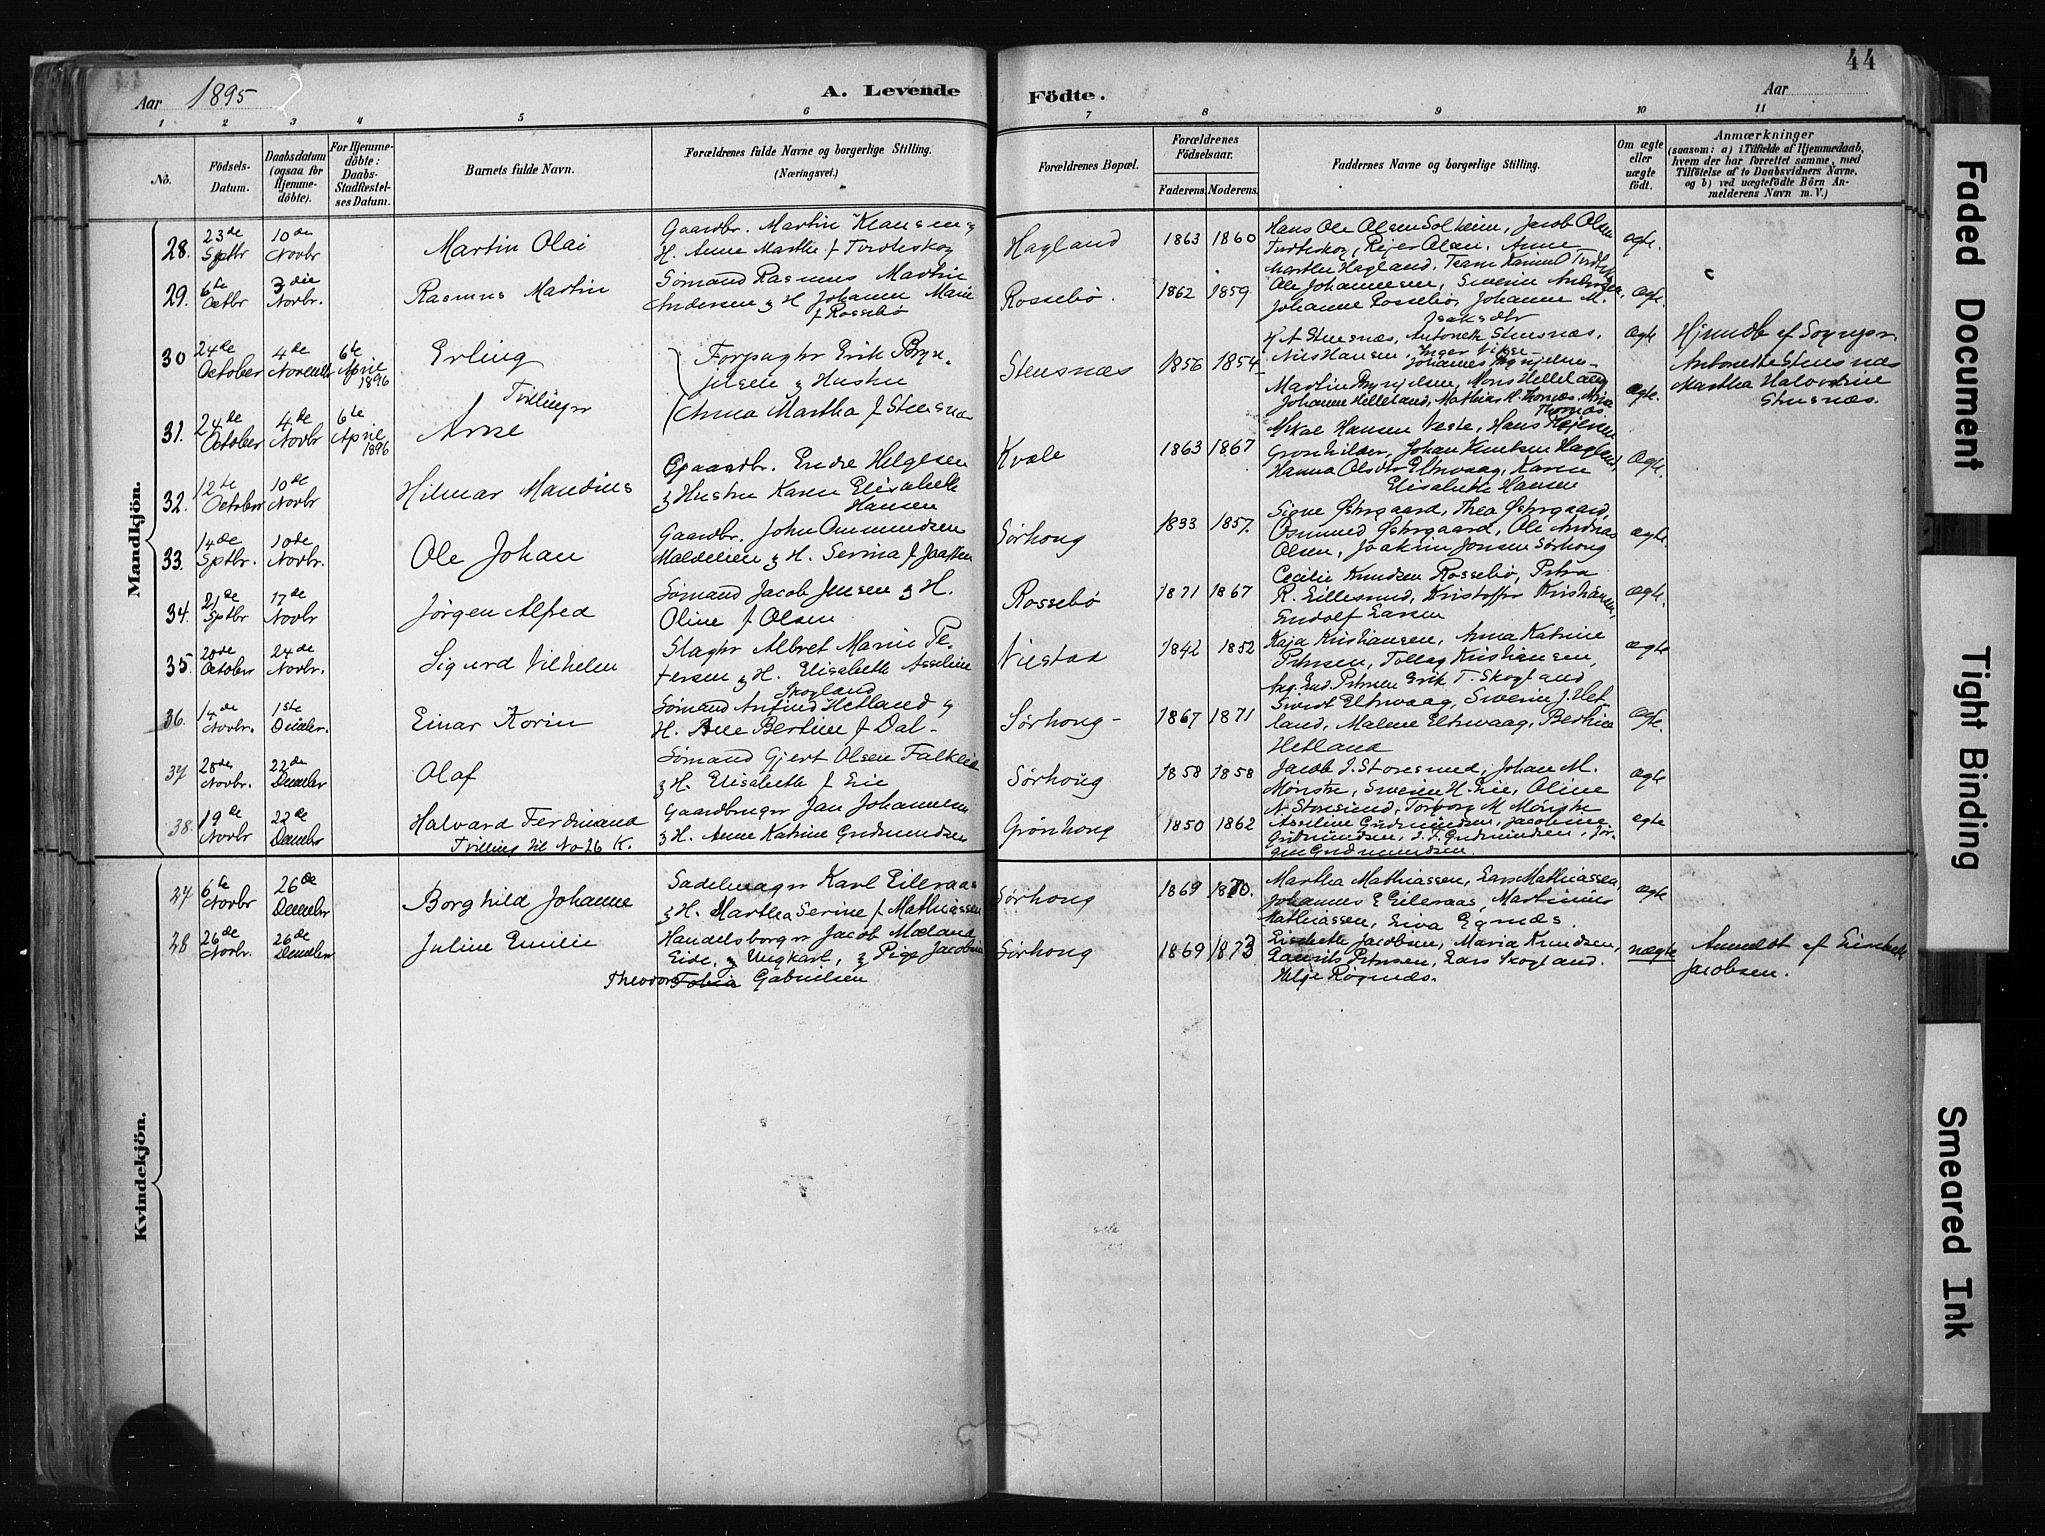 44
Aar 1895
A. Levende
Födte.
Aar
1 2 3 4 5 6 7 8 9 10 11
No.
Födsels-
Datum.
Daabsdatum
(ogsaa for
Hjemme-
döbte).
For Hjemme-
döbte:
Daabs-
Stadfæstel-
ses Datum.
Barnets fulde Navn.
Forældrenes fulde Navne og borgerlige Stilling.
(Næringsvei.)
Forældrenes Bopæl.
Forældrenes
Födselsaar.
Faderens. Moderens.
Faddernes Navne og borgerlige Stilling.
Om ægte
eller
uægte
födt.
Anmærkninger
(saasom: a) i Tilfælde af Hjemmedaab,
hvem der har forrettet samme, med
Tilföielse af to Daabsvidners Navne,
og b) ved uægtefödte Börn An-
melderens Navn m. V.)
Mandkjön.
28. 23de Sptbr 10de Novbr Martin Olai
Gaardbr. Martin Klausen &
H. Anne Marthe f. Tvedteskog
Hagland 1863 1860
Hans Ole Olsen Solheim, Jacob Olsen
Tvedteskog, Reier Olsen, Anne
Marthe Hagland,
ægte.
29. 6te Octbr 3die Novbr. Rasmus Martin
Sömand Rasmus Martin
Andersen & H. Johanne Marie
f Rossebö
Rossebö. 1862 1859
Ole Johannesen, Sverin Andersen,
Johanne Rossebö, Johanne M.
Isaksdtr
ægte.
30 24de October 4de Novembr 6te April 1896 Erling
Forpagtr Erik Bryn-
jelsen & Hustru
Stensnæs 1856 1854
Antonette Stensnæs,
Nils Hansen, Inger Vikse
ægte
Hjemdb af Sognepr.
Antonette Stensnæs
Martha Halvorsine
Stensnæs.
Tvillinger
31. 24de October 4de Novbr 6te April 1896 Arne
Anna Martha f. Stensnæs
Johanne Helleland, Mathias H. Thornæs, Anna
Thornæs
ægte.
32. 12te October 10de Novbr Hilmar Mandius
Gaardbr. Endre Helgesen
& Hustru Karen Elisabeth
Hansen
Kvale 1863 1867
Mikal Hansen Veste, Hans Reiersen
Grønhilder, Johan Knutsen Hagland,
Hanna Olsdtr Eltravaag, Karen
Elisabeth Hansen
ægte.
33. 14de Sptbr. 10de Novbr. Ole Johan
Gaardbr. John Ommundsen
& H. Serina f
Sørhoug 1833 1857.
Signe Østrgaard, Thea Østrgaard,
Osmund Østrgaard, Ole Andreas
Olsen, Joakim Jonsen Sørhoug
ægte.
34. 21de Sptbr 17de Novbr Jörgen Alfred
Sömand Jacob Jensen & H.
Oline f Olsen
Rossebö 1871 1867
Cecilie Knudsen Rossebö, Petra
R. Lillesund, Kristoffer Kristiansen,
Gudolf Larsen
ægte.
35. 20de October 24de Novbr. Sigurd Vilhelm
Slagtr Albret Marin Pe-
tersen & H. Elisabeth Asseline
Skogland
1842 1852
Kaja Kristiansen, Anna Katrine
Petersen, Tollag Kristiansen,
Aug. Emd. Petersen Erik T. Skogland
ægte
36. 14de Novbr. 1ste Decmbr. Einar Korin
Sömand Anfind Hetland &
H. Ane Bertine f Dal-
Sørhoug- 1867 1871
Sivert Eltravaag, Severin J. Het-
land, Malene Eltravaag, Berthine
Hetland
ægte.
37 28de Novbr. 22de Decmbr Olaf
Sömand Gjert Olsen Falkeid
& H. Elisabeth f Eie
Sørhoug 1858 1858
Jacob J. Storesund, Johan M.
Mönstre, Severin H. Eie, Oline
N. Storesund, Torborg M Mönstre
ægte
38. 19de Novbr 22de Decmbr Halvard Ferdinand
Tvilling til No 26 K.
Gaardbruger Jan Johannesen
& H. Anne Katrine Gudmundsen
Grönhoug 1850 1862
Asseline Gudmundsen, Jacobine
Gudmundsen, J. F. Gudmundsen, Jör-
gen Gudmundsen.
ægte
Kvindekjön.
27 6te Novbr 26de Decmbr Borghild Johanne
Sadelmagr Karl Eileraas
& H. Martha Serine f Mathiassen
Sørhoug 1869 1870.
Martha Mathiassen, Lars Mathiassen,
Johannes E Eileraas, Martinius
Mathiassen, Eiva Egnæs.
ægte
28 26de Novbr. 26de Decmbr Juline Emilie
Handelsborgr Jacob Mæland
Eide, Ungkarl, & Pige Jacobine
Theodora Gabrielsen
Sørhoug 1869 1873
Lisabeth Jacobsen, Maria Knudsen,
Laurits Petersen, Lars Skogland.
Helge Røgenæs.
uægte
Anmeldt af Lisabeth
Jacobsen.
Faded Document
Tight Binding
Smeared Ink